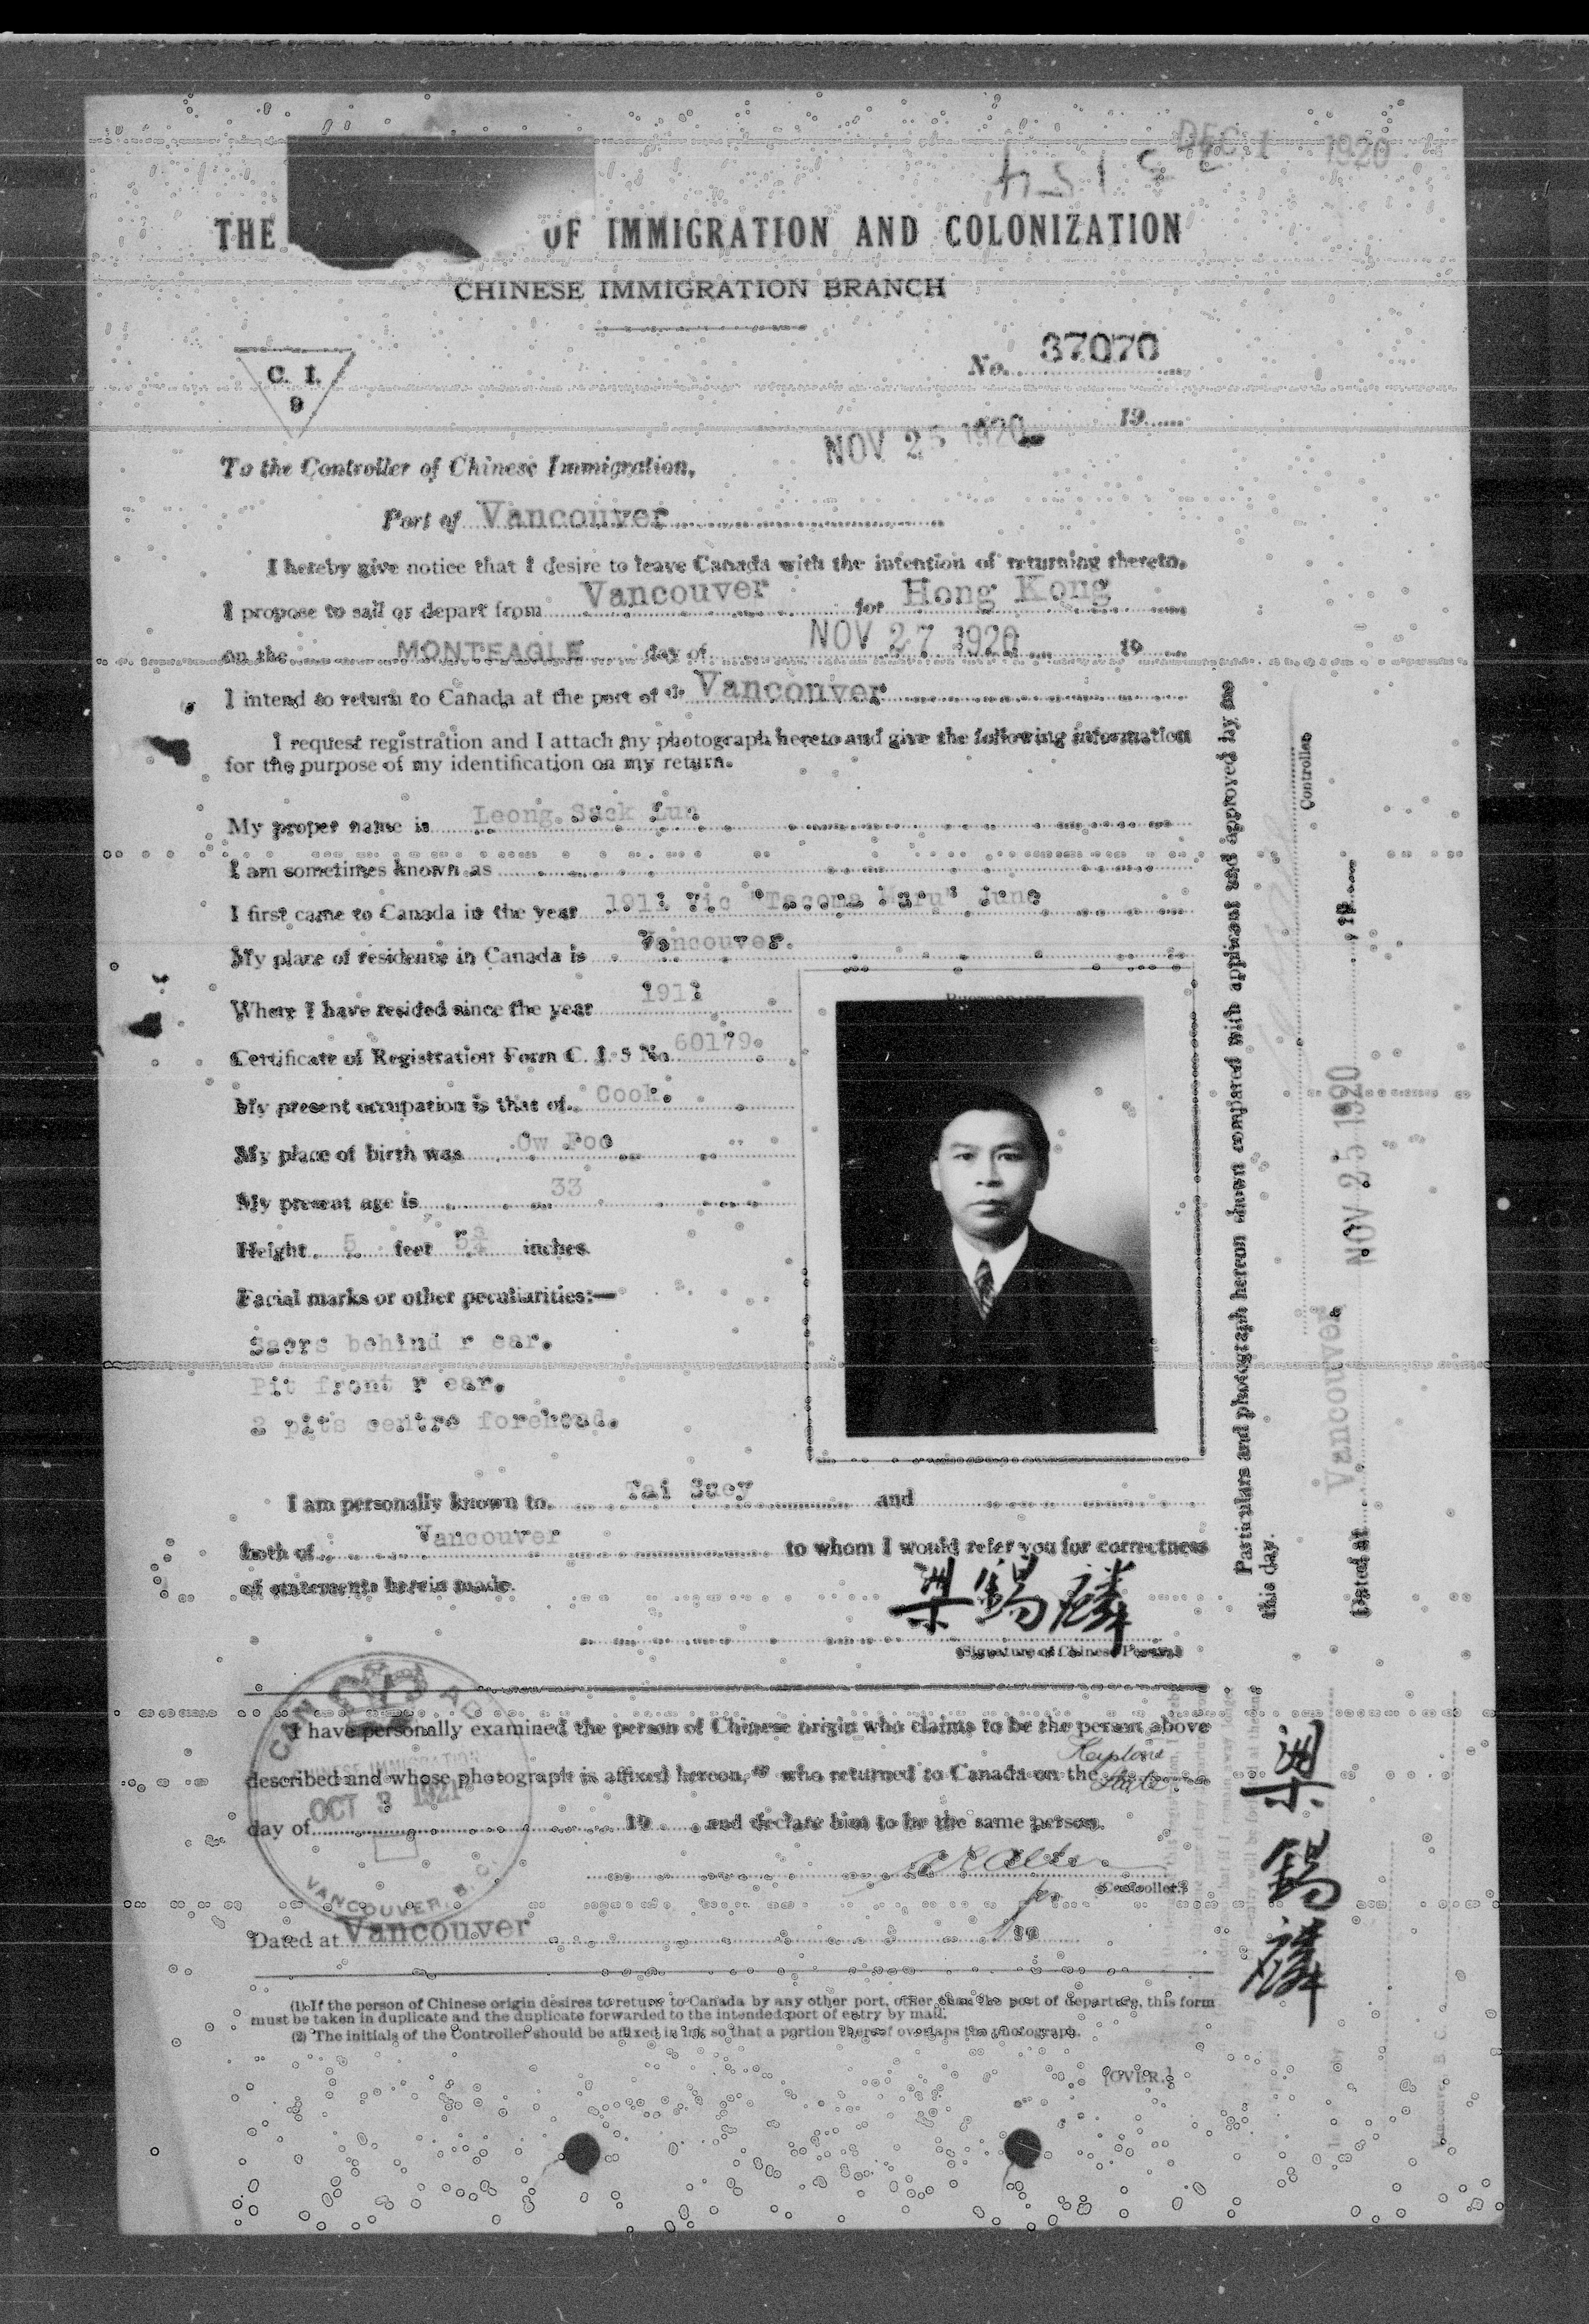 DEC 1 1920
THE OF IMMIGRATION AND COLONIZATION
CHINESE IMMIGRATION BRANCH
C. I.
9
No. 37070
NOV 25 1920 19
To the Controller of Chinese Immigration,
Port of Vancouver
I hereby give notice that I desire to leave Canada with the intention of returning thereto.
I propose to sail or depart from Vancouver for Hong Kong
on the MONTEAGLE day of NOV 27 1920 19
I intend to return to Canada at the port of (1) Vancouver
I request registration and I attach my photograph hereto and give the following information
for the purpose of my identification on my return.
My proper name is Leong Sack Lun
I am sometimes known as
I first came to Canada in the year 1911 Vic "Tacoma Maru" June
My place of residence in Canada is Vancouver.
Where I have resided since the year 1911
Certificate of Registration Form C. I. 5 No. 60179.
My present occupation is that of Cook.
My place of birth was Ow Foo
My present age is 33
Height 5 feet 5¾ inches.
Facial marks or other peculiarities:—
Scars behind r ear.
Pit front r ear.
2 pits centre forehead.
I am personally known to Tai Suey and
both of Vancouver to whom I would refer you for correctness
of statements herein made.
梁錫麟
(Signature of Chinese Person)
I have personally examined the person of Chinese origin who claims to be the person above
described and whose photograph is affixed hereon, (2) who returned to Canada on the Keystone State
day of 19 and declare him to be the same person.
CHINESE IMMIGRATION
OCT 3 1921
VANCOUVER, B. C.
Controller.
Dated at Vancouver 19
(1) If the person of Chinese origin desires to return to Canada by any other port, other than the port of departure, this form
must be taken in duplicate and the duplicate forwarded to the intended port of entry by mail.
(2) The initials of the Controller should be affixed in ink so that a portion thereof overlaps the photograph.
[OVER.]
Particulars and photograph hereon shown compared with applicant and approved by me
this day.
Controller
Dated at Vancouver NOV 25 1920, 19
梁錫麟